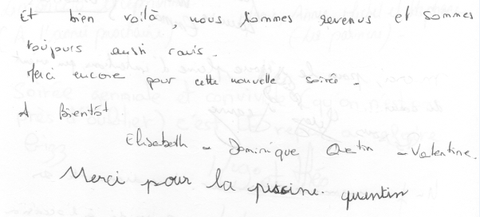 Et bien voilà, nous sommes revenus et sommes
toujours aussi ravis.
Merci encore pour cette nouvelle soirée -
A Bientôt
Elisabeth - Dominique - Valentine.
Merci pour la piscine. quentin